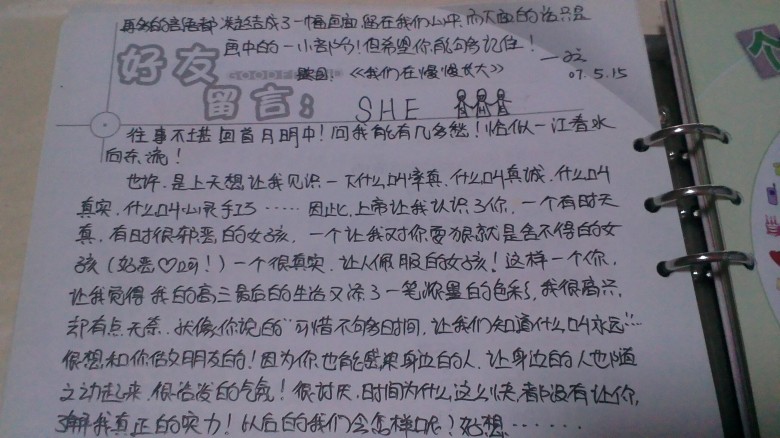 再多的言语都凝结成了一幅画面留在我们心中,而下面的话只是
画中的一小部分!但希望你能够记住!
题目:《我们在慢慢长大》
07.5.15
好友 GOODFRIEND
留言: SHE
往事不堪回首月明中!问我能有几多愁!恰似一江春水
向东流!
也许是上天想让我见识一下什么叫率真,什么叫真诚,什么叫
真实,什么叫心灵手巧……因此,上帝让我认识了你,一个有时天
真,有时很邪恶的女孩,一个让我对你要狠就是舍不得的女
孩(好恶♡呵!)一个很真实,让人佩服的女孩!这样一个你,
让我觉得我的高三最后的生活又添了一笔浓墨的色彩,我很高兴,
却有点无奈,就像你说的"可惜不够多时间,让我们知道什么叫永远"…
很想和你做好朋友的!因为你也能感染身边的人,让身边的人也随
之动起来,很活泼的气氛!很讨厌,时间为什么这么快,都没有让你,
了解我真正的实力!以后的我们会怎样呢?好想……